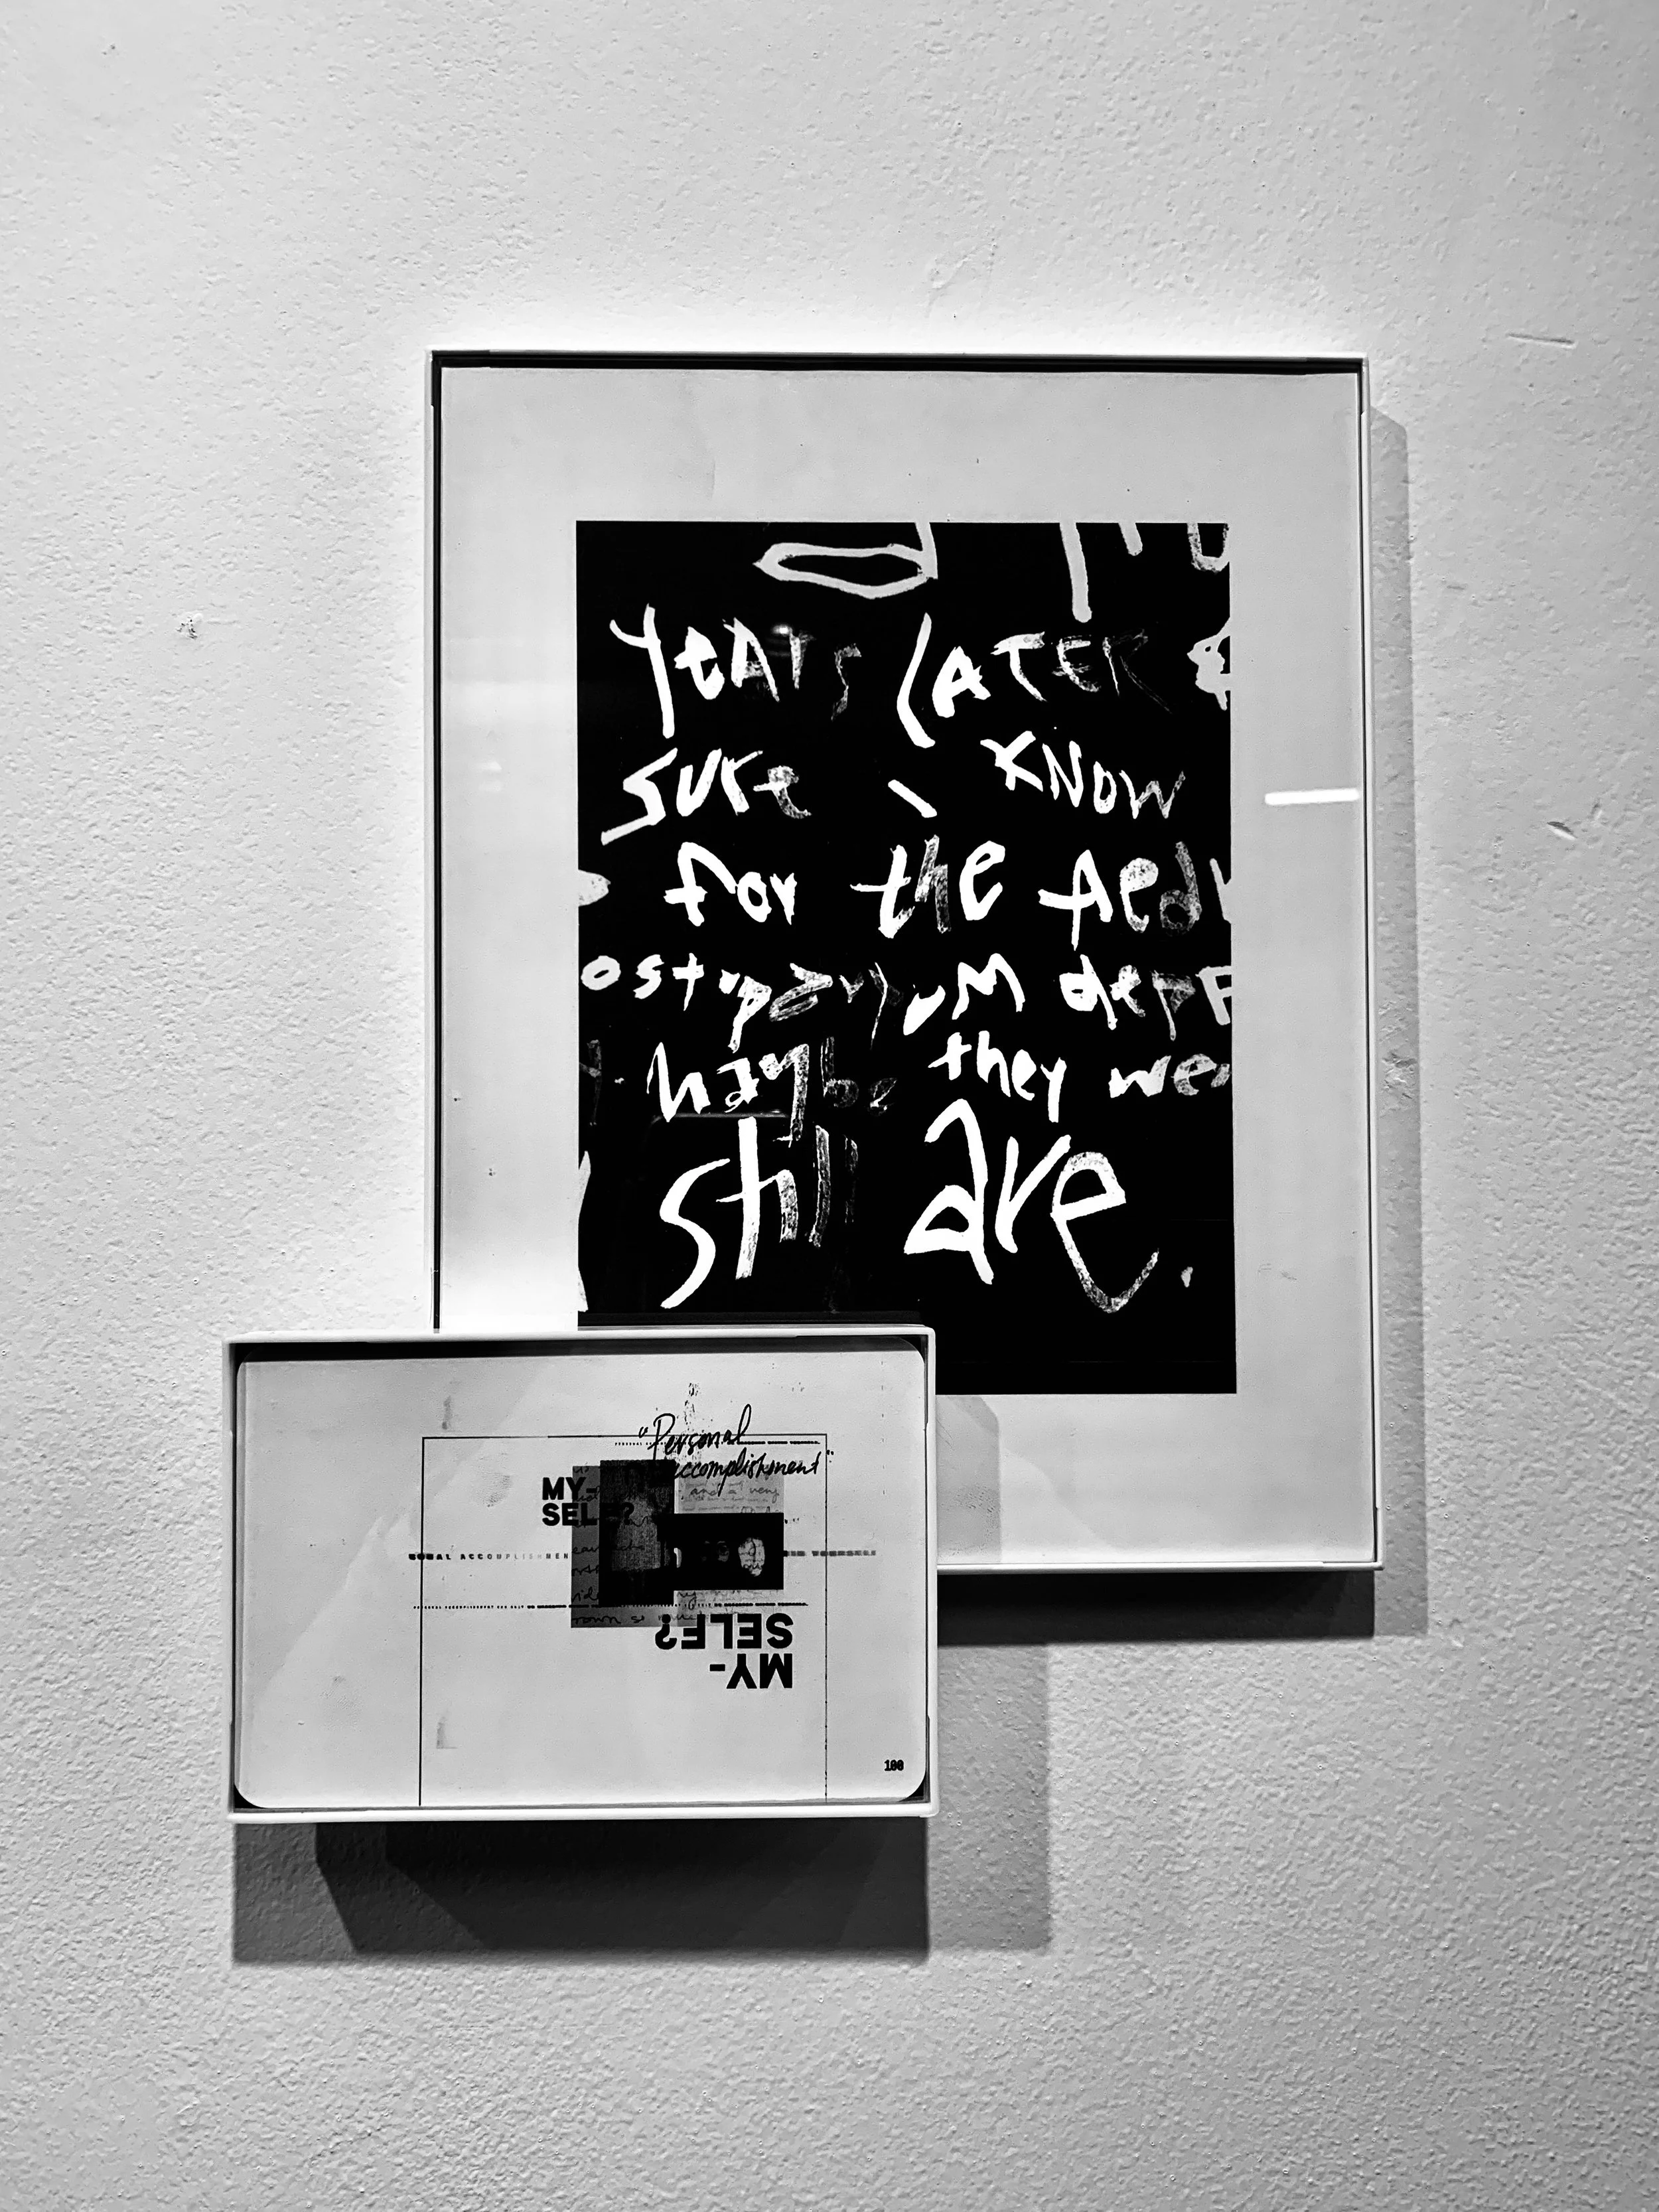 years LATER
sure I KNOW
for the
ostpartum depr
maybe they wer
still are.
"Personal
accomplishment"
and a very
MY-
SELF?
SONAL ACCOMPLISHMEN
YOURSELF
MY-
SELF?
100